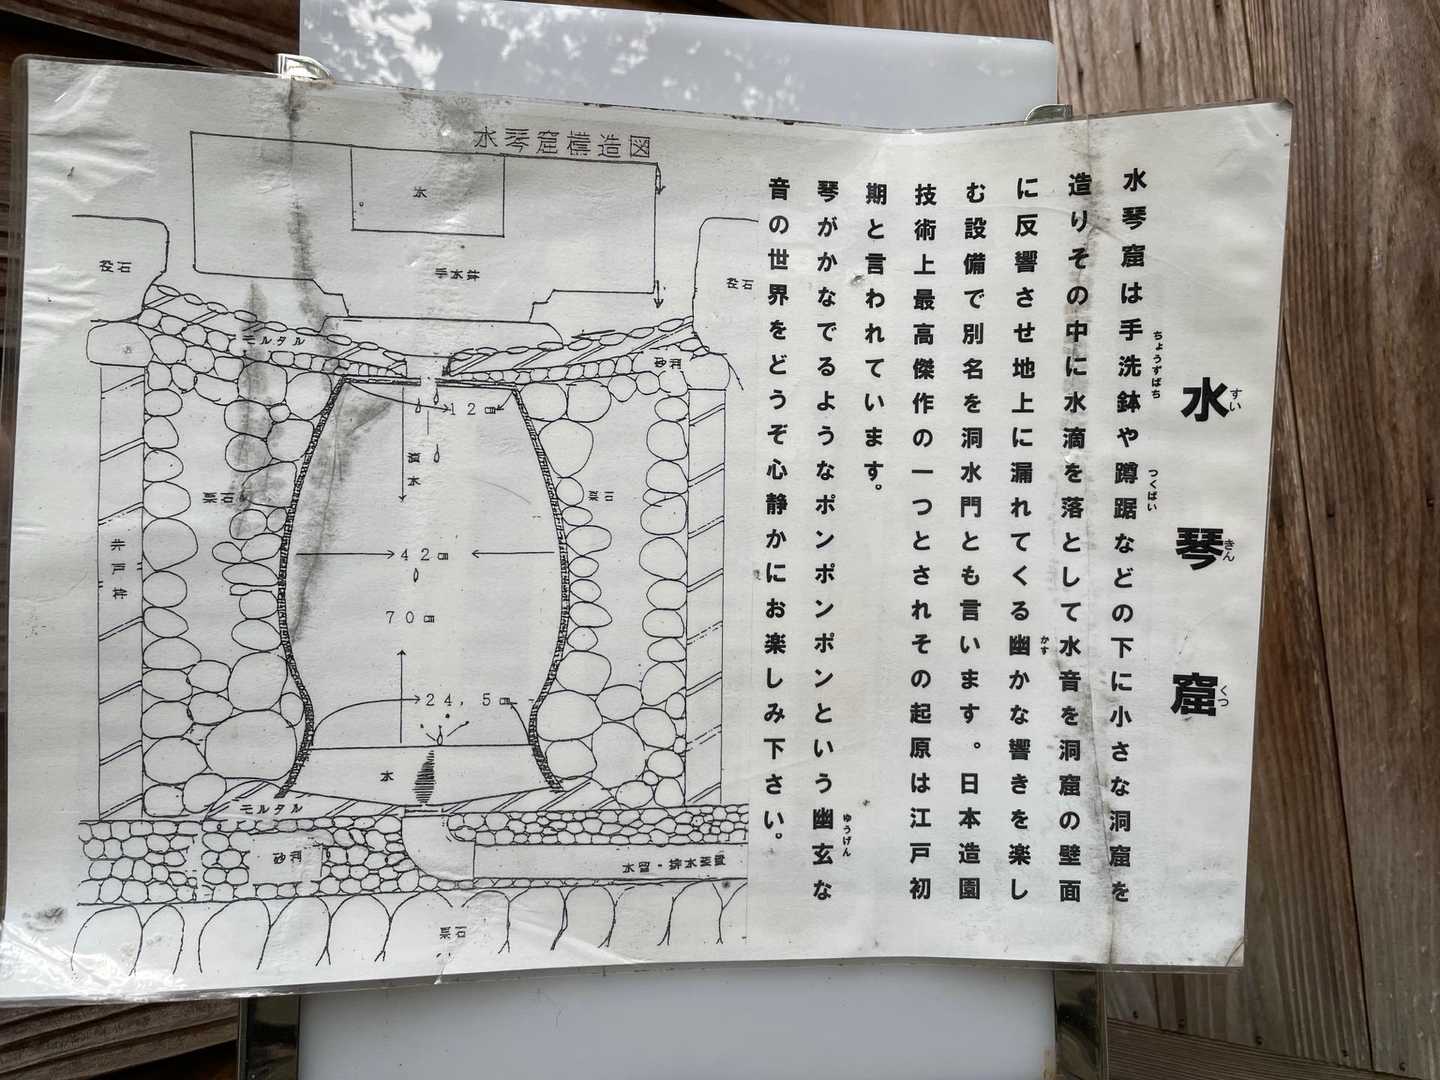 水琴窟
すいきんくつ
水琴窟は手洗鉢や蹲踞などの下に小さな洞窟を
ちょうずばち
つくばい
造りその中に水滴を落として水音を洞窟の壁面
に反響させ地上に漏れてくる幽かな響きを楽し
かす
む設備で別名を洞水門とも言います。日本造園
技術上最高傑作の一つとされその起原は江戸初
期と言われています。
琴がかなでるようなポンポンポンという幽玄な
ゆうげん
音の世界をどうぞ心静かにお楽しみ下さい。
水琴窟構造図
水
手水鉢
役石
役石
モルタル
砂利
12㎝
滴水
栗石
栗石
42㎝
井戸枠
70㎝
24,5㎝
水
モルタル
砂利
栗石